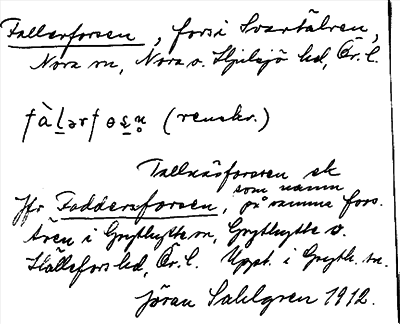 Fallerforsen, fors i Svartälven,
Nora sn, Nora o. Hjulsjö hd, Ör. l.
fàlərfosn (renskr.)
Tallnäsforsen ek
som namn
Jfr Faddersforsen, på samma fors.
även i Grythytte sn, Grythytte o.
Hällefors hd, Ör. l. Uppt. i Gryth. sn.
Jöran Sahlgren 1912.